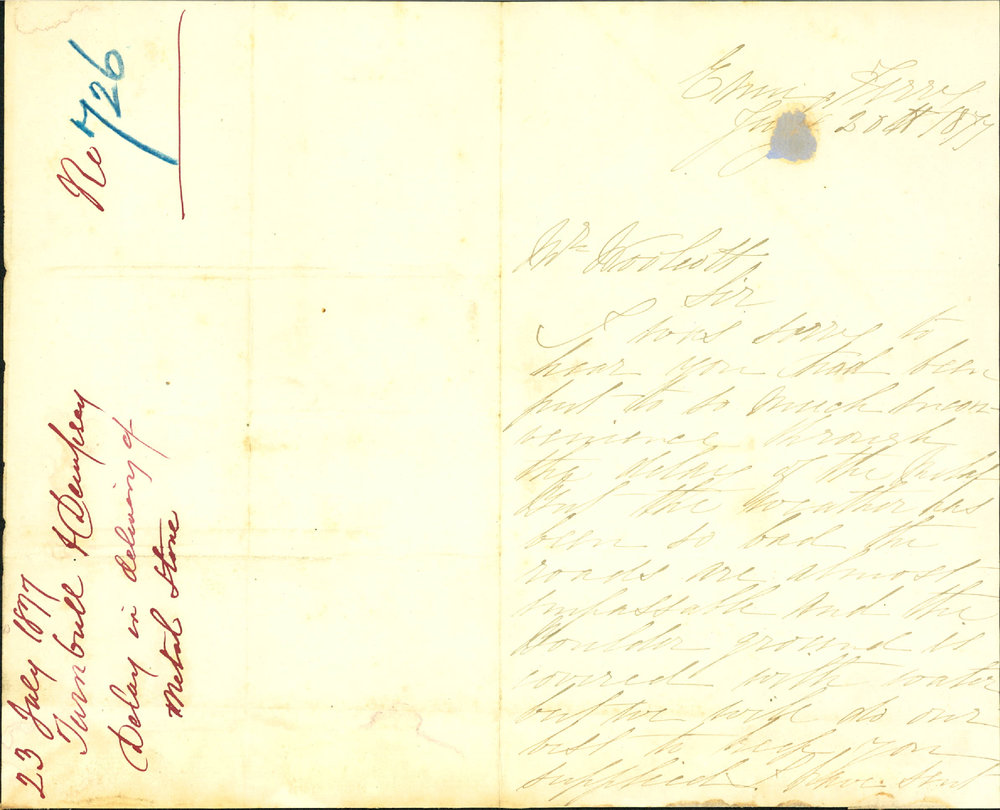 No 726
23 July 1877
Turnbull & Dempsey
Delay in delivering of
Metal Stone
July 20th 1877
Mr Woolcott
Sir
I was sorry to
hear you had been
put to so much incon
venience through
the delay of the Metal
But the Weather has
been so bad the
roads are almost
impassable and the
Boulder ground is
covered with water
but we will do our
best to keep you
supplied I have sent